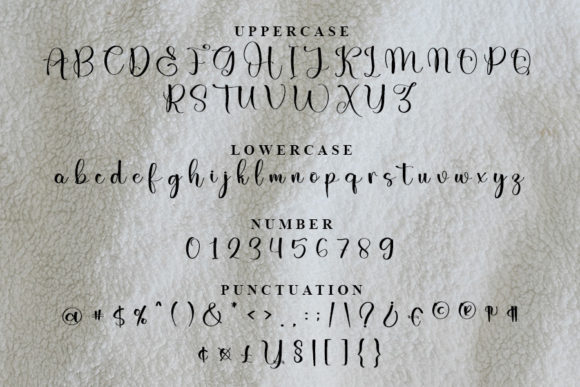 UPPERCASE
ABCDEFGHIJKLMNOPQ
RSTUVWXYZ
LOWERCASE
abcdefghijklmnopqrstuvwxyz
NUMBER
0123456789
PUNCTUATION
@ # $ % ^ ( ) & * < > . , : ; / | \ ? ¿ € © ® ¶
¢ ¤ £ ¥ § | [ ] { }